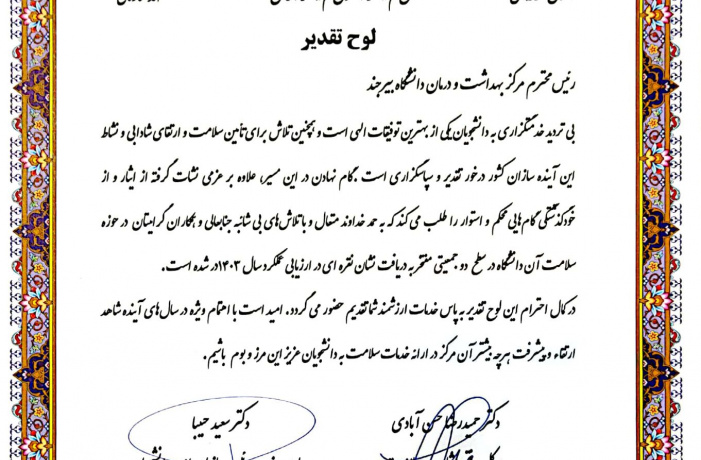 لوح تقدیر
رئیس محترم مرکز بهداشت و درمان دانشگاه بیرجند
بی تردید خدمتگزاری به دانشجویان یکی از بهترین توفیقات الهی است و همچنین تلاش برای تأمین سلامت و ارتقای شادابی و نشاط
این آینده سازان کشور درخور تقدیر و سپاسگزاری است. گام نهادن در این مسیر، علاوه بر عزمی نشات گرفته از ایثار و از
خودگذشتگی گام‌هایی محکم و استوار را طلب می کند که به حمد خداوند متعال و با تلاش‌های بی شائبه جنابعالی و همکاران گرامیتان در حوزه
سلامت آن دانشگاه در سطح دو جمعیتی مفتخر به دریافت نشان نقره ای در ارزیابی عملکرد سال ۱۴۰۳ در شده است.
در کمال احترام این لوح تقدیر به پاس خدمات ارزشمند شما تقدیم حضور می گردد. امید است با اهتمام ویژه در سال‌های آینده شاهد
ارتقاء و پیشرفت هرچه بیشتر آن مرکز در ارائه خدمات سلامت به دانشجویان عزیز این مرز و بوم باشیم.
دکتر حمیدرضا حسن آبادی
دکتر سعید حبیبا